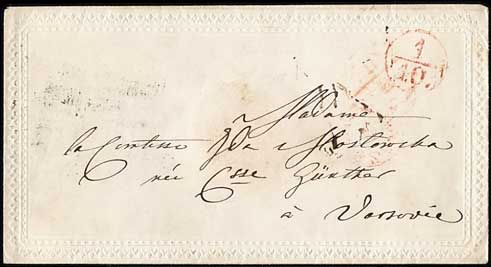 1
10.
à Madame
la Comtesse Ida Mostowska
née Csse Günther
à Varsovie